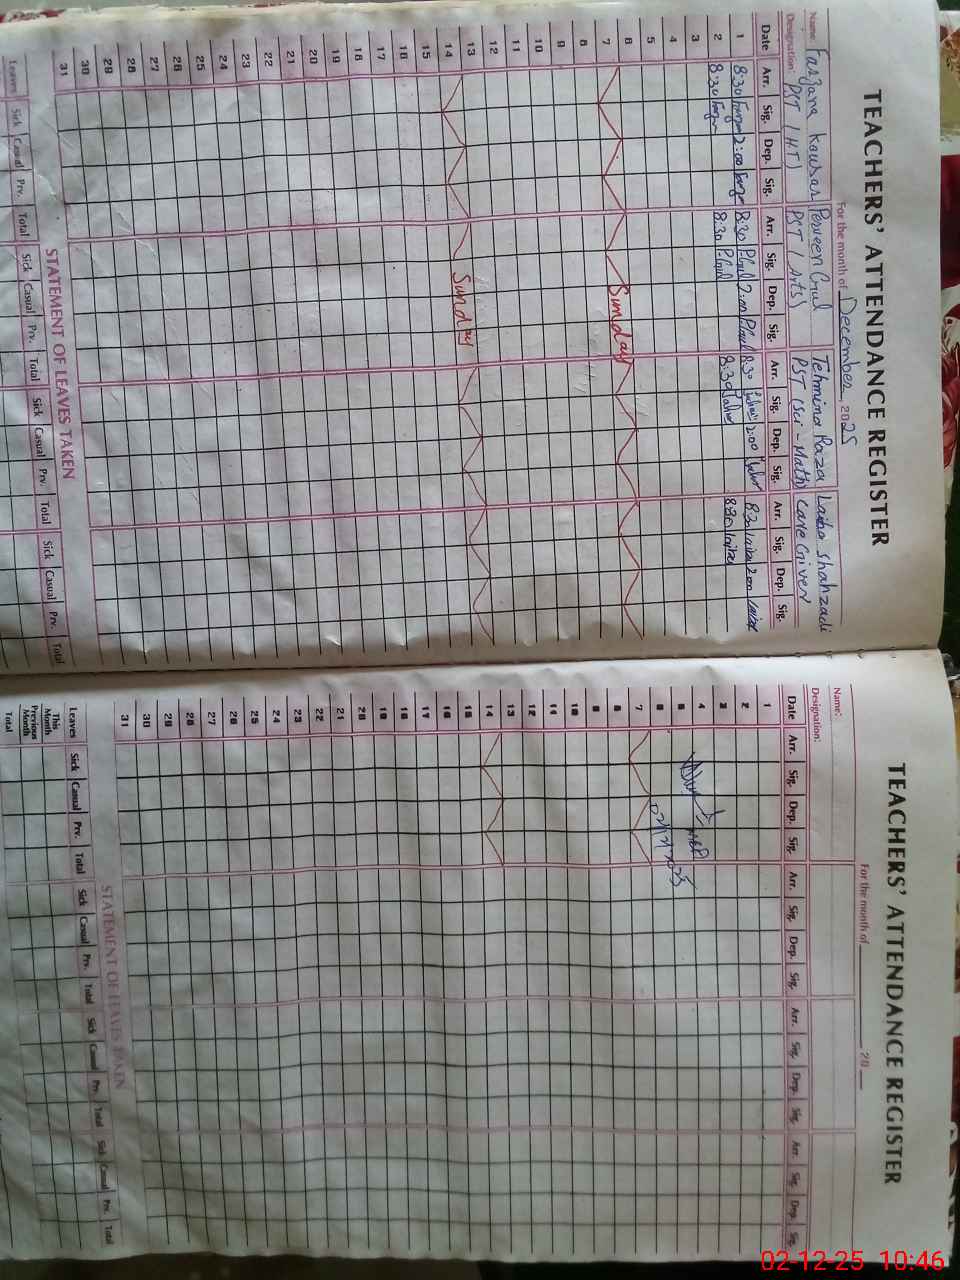 TEACHERS' ATTENDANCE REGISTER
For the month of December, 2025
Name: Farzana Kousar Perveen Gul Tehmina Raza Laiba Shahzadi
Designation: PST (H.T) PST (Arts) PST (Sci-Math) Care Giver
Date Arr. Sig. Dep. Sig. Arr. Sig. Dep. Sig. Arr. Sig. Dep. Sig. Arr. Sig. Dep. Sig.
1 8:30 2:00 8:30 P.Gul 2:00 P.Gul 8:30 2:00 8:30 Laiba 2:00
2 8:30 8:30 P.Gul 8:30 8:30
3
4
5
6
7 Sunday
8
9
10
11
12
13
14 Sunday
15
16
17
18
19
20
21
22
23
24
25
26
27
28
29
30
31
STATEMENT OF LEAVES TAKEN
Leaves Sick Casual Prv. Total Sick Casual Prv. Total Sick Casual Prv. Total Sick Casual Prv. Total
TEACHERS' ATTENDANCE REGISTER
For the month of 20
Name:
Designation:
Date Arr. Sig. Dep. Sig. Arr. Sig. Dep. Sig. Arr. Sig. Dep. Sig. Arr. Sig. Dep. Sig.
1
2
3
4
5
6
7
8
9
10
11
12
13
14
15
16
17
18
19
20
21
22
23
24
25
26
27
28
29
30
31
02/12/2025
STATEMENT OF LEAVES TAKEN
Leaves Sick Casual Prv. Total Sick Casual Prv. Total Sick Casual Prv. Total Sick Casual Prv. Total
This Month
Previous Month
Total
02-12-25 10:46